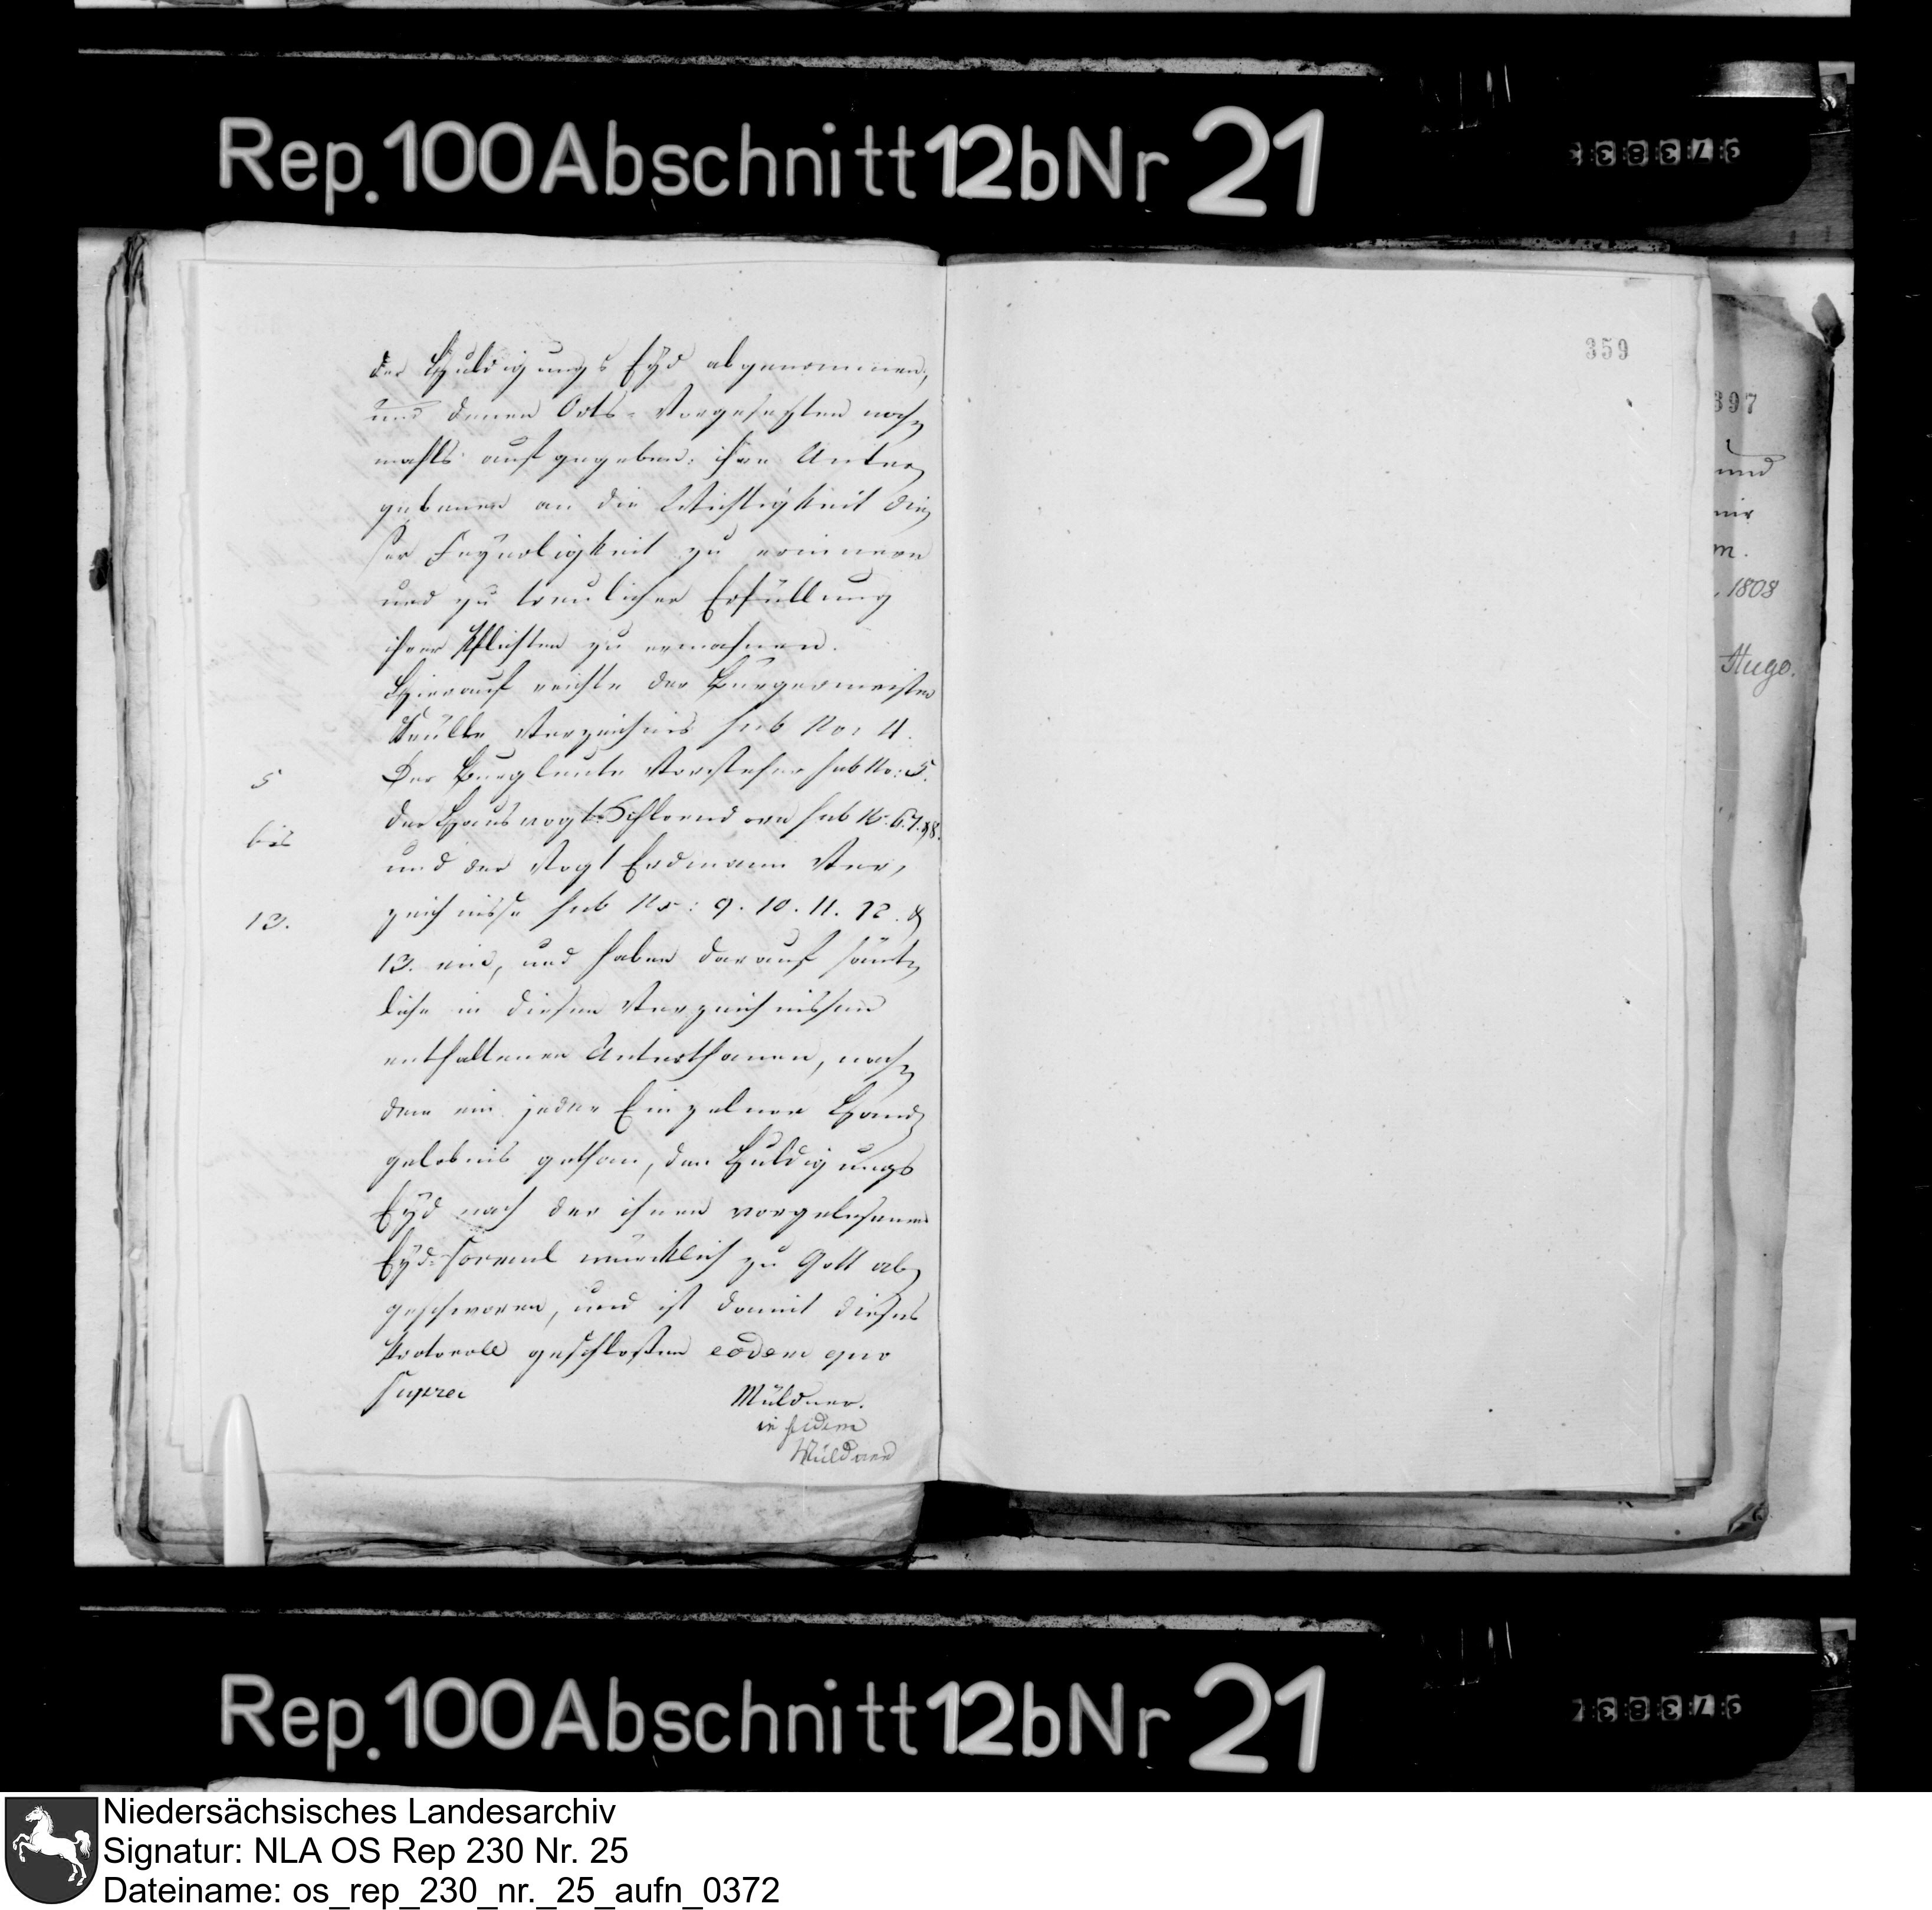 Rep. 100 Abschnitt 12b Nr 21
der Huldigungs Eyd abgenommen,
und denen Orts-Vorgesezten noch
mahls aufgegeben: ihre Unter
gebenen an die Wichtigkeit die
ser Feyerligkeit zu erinnern
und zu treulicher Erfüllung
ihrer Pflichten zu ermahnen.
Hierauf reichte der Burgermeister
Verzeichnis sub No: 4.
5
Der Burgleute Vorsteher sub No: 5.
der Hausvogt sub No. 6. 7. & 8.
bis
und der Vogt Erdmann Ver,
13.
zeichnisse sub No: 9. 10. 11. 12. &
13. ein, und haben darauf sämt
liche in diesen Verzeichnissen
enthaltenen Unterthanen, nach
dem ein jeder Einzelner Hand
gelobnis gethan, den Huldigungs
Eyd nach der ihnen vorgelesenen
Eyd-Formel würcklich zu Gott ab
geschworen, und ist damit dieses
Protocoll geschlossen eodem quo
supra
Müldner.
in fidem
Müldner
359
397
und
mir
m.
1808
Hugo.
Rep. 100 Abschnitt 12b Nr 21
Niedersächsisches Landesarchiv
Signatur: NLA OS Rep 230 Nr. 25
Dateiname: os_rep_230_nr._25_aufn_0372